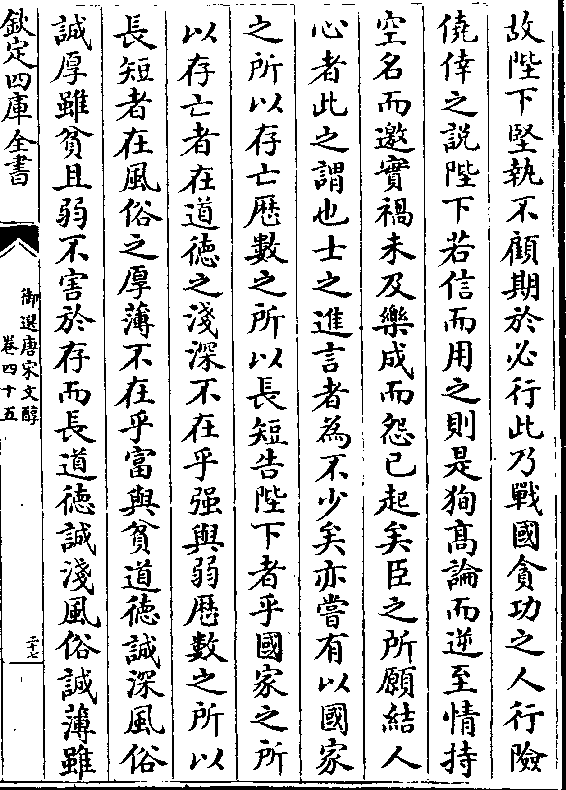 故陛下堅執不顧期於必行此乃戰國貪功之人行險
僥倖之說陛下若信而用之則是狥髙論而逆至情持
空名而邀實禍未及樂成而怨已起矣臣之所願結人
心者此之謂也士之進言者為不少矣亦嘗有以國家
之所以存亡厯數之所以長短告陛下者乎國家之所
以存亡者在道徳之淺深不在乎强與弱厯數之所以
長短者在風俗之厚薄不在乎富與貧道徳誠深風俗
誠厚雖貧且弱不害於存而長道徳誠淺風俗誠薄雖
欽定四庫全書
御選唐宋文醇
卷四十五
二十七